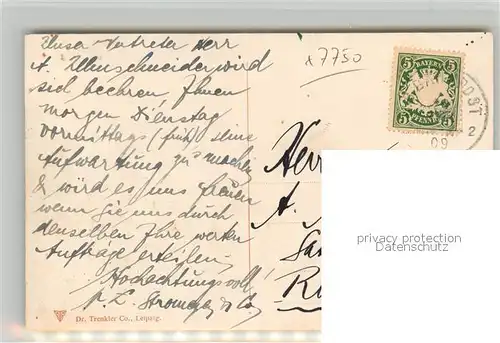 Unser Vertreter Herr
A. Ullenschneider wird
sich beehren Ihnen
morgen Dienstag
Vormittags (früh) seine
Aufwartung zu machen
& wird es uns freuen
wenn Sie uns durch
denselben Ihre werten
Aufträge erteilen.
Hochachtungsvoll!
p. L. Stromeyer & Co.
Dr. Trenkler Co., Leipzig.
x7750
5 BAYERN 5
5 PFENNIG 5
09
2
Herr
A.
privacy protection
www.ansichtskarten-lexikon.de